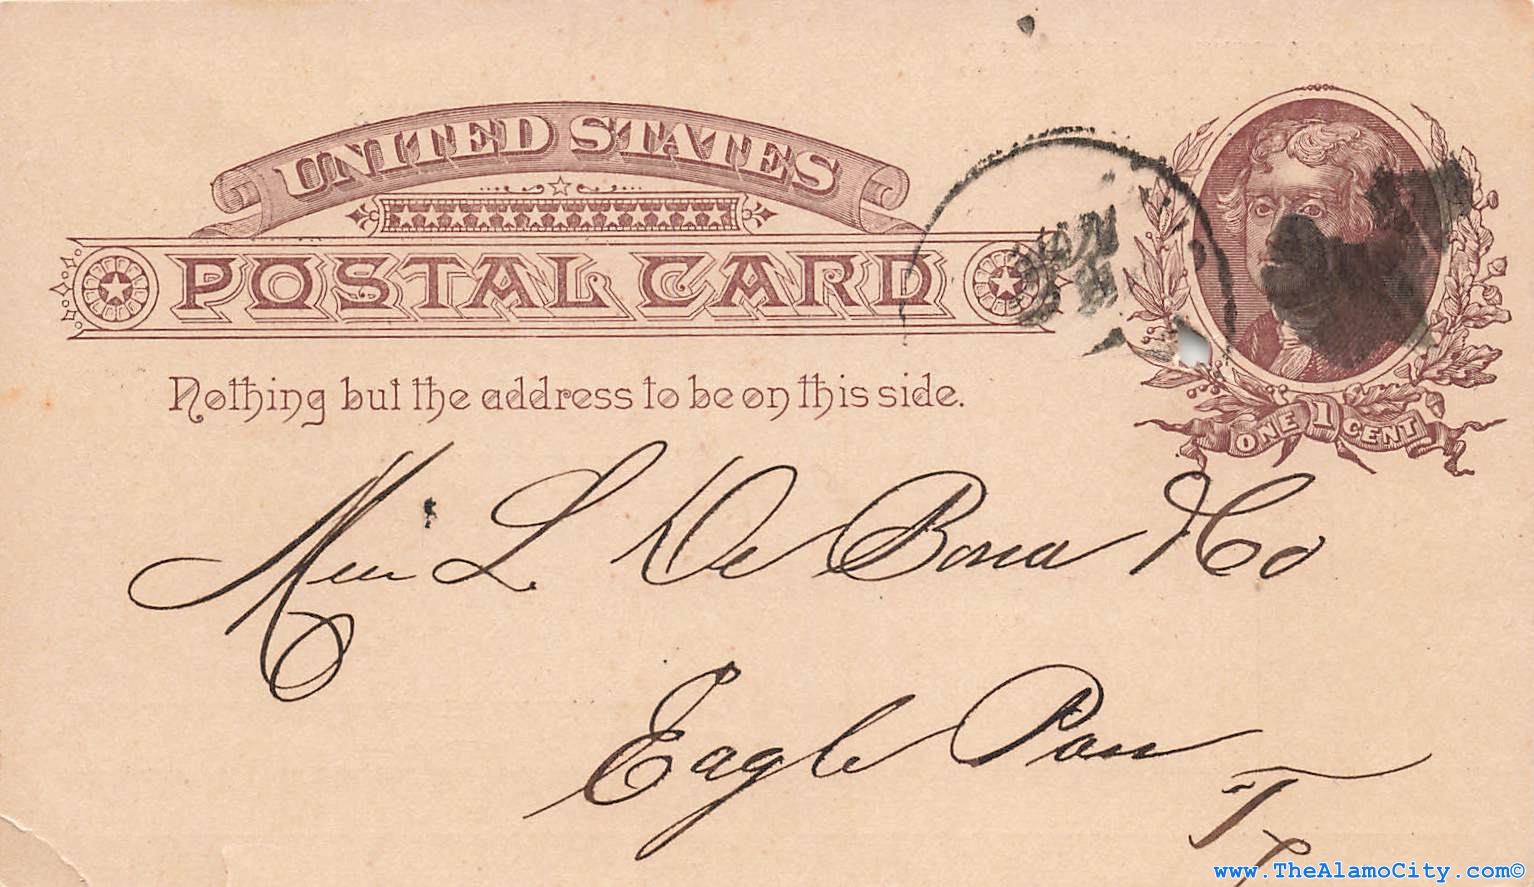 UNITED STATES
POSTAL CARD
Nothing but the address to be on this side.
ONE 1 CENT
L. De Bona & Co
Eagle Pass
Tx
www.TheAlamoCity.com©